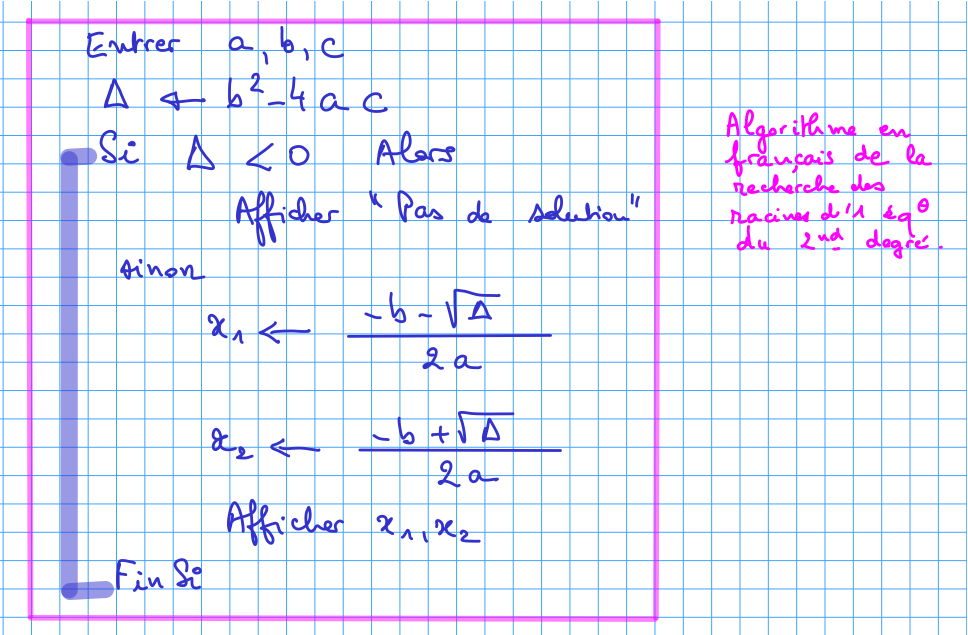 Entrer a, b, c
Δ ← b² - 4 a c
Si Δ < 0 Alors
Afficher " Pas de solution"
sinon
x₁ ← (-b - √Δ) / 2 a
x₂ ← (-b + √Δ) / 2 a
Afficher x₁, x₂
Fin Si
Algorithme en
français de la
recherche des
racines d'1 éq°
du 2nd degré.